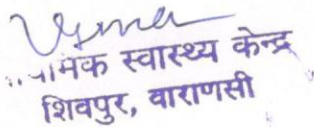 स्वास्थ्य केन्द्र
शिवपुर, वाराणसी